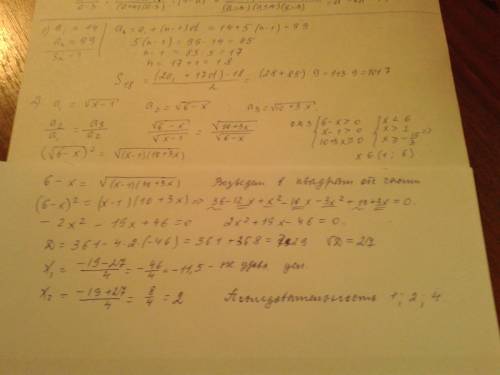 1) a₁ = 14 aₙ = a₁ + (n-1)d = 14 + 5(n-1) = 99
aₙ = 99 5(n-1) = 99 - 14 = 85
Sₙ - ? n-1 = 85 : 5 = 17
n = 17 + 1 = 18
S₁₈ = (2a₁ + 17d)·18 / 2 = (28 + 85)·9 = 113·9 = 1017
2) a₁ = √(x-1) a₂ = √(6-x) a₃ = √(10+3x)
a₂/a₁ = a₃/a₂ √(6-x)/√(x-1) = √(10+3x)/√(6-x) { 6-x>0 x-1>0 10+3x≥0 { x<6 x>1 x≥-10/3
(√(6-x))² = √((x-1)(10+3x)) x∈(1; 6)
6-x = √((x-1)(10+3x)) Возведем в квадрат обе части
(6-x)² = (x-1)(10+3x) => 36-12x+x²-10x-3x²+10+3x=0.
-2x² - 19x + 46 = 0 2x² + 19x - 46 = 0.
D = 361 - 4·2·(-46) = 361 + 368 = 729 √D = 27
x₁ = (-19-27)/4 = -46/4 = -11,5 -
x₂ = (-19+27)/4 = 8/4 = 2 Последовательность 1; 2; 4.